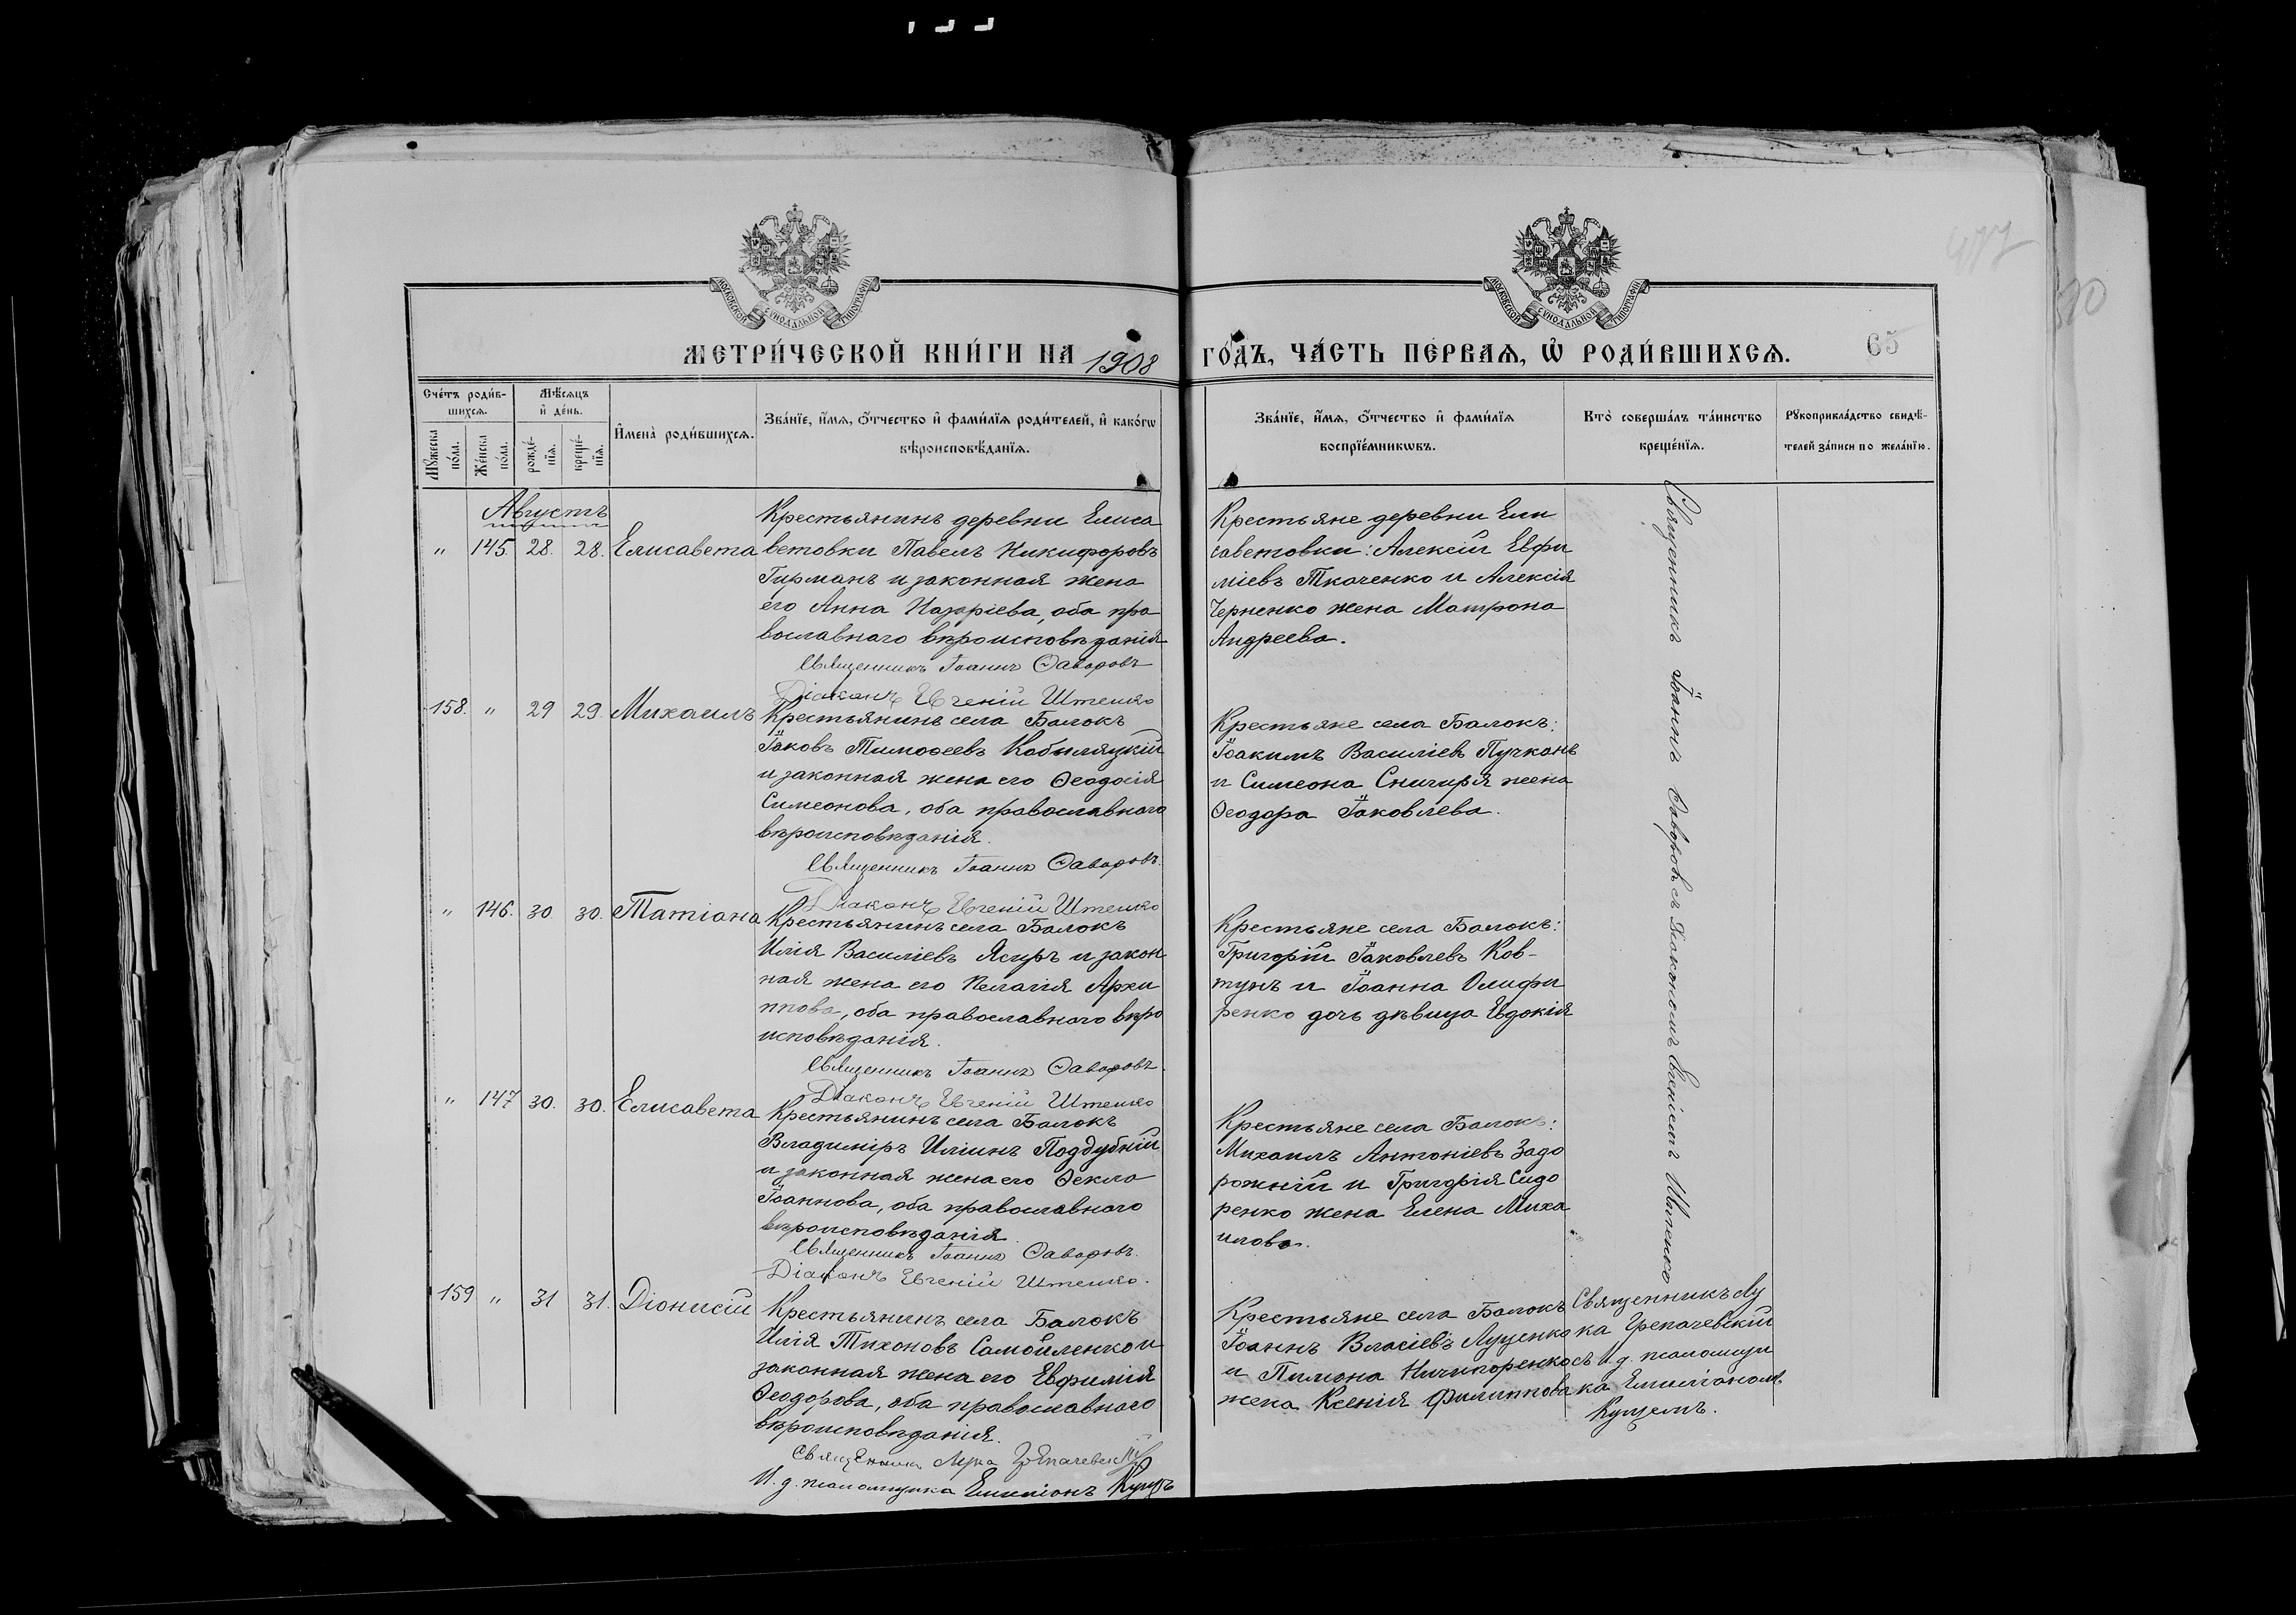 МОСКОВСКОЙ СѴНОДАЛЬНОЙ ТИПОГРАФІИ
МОСКОВСКОЙ СѴНОДАЛЬНОЙ ТИПОГРАФІИ
477
МЕТРИ́ЧЕСКОЙ КНИ́ГИ НА 1908 ГО́ДЪ, ЧА́СТЬ ПЕ́РВАЯ, Ѡ РОДИ́ВШИХСЯ.
65
Сче́тъ роди́в-
шихся.
Мꙋжеска
по́ла.
Же́нска
по́ла.
Мѣ́сяцъ
и҆ де́нь.
рожде́-
нїя.
креще́-
нїя.
И҆мена̀ роди́вшихся.
Зва́нїе, и҆́мя, ѻ҆́тчество и҆ фами́лїя роди́телей, и҆ како́гѡ
вѣроисповѣ́данїя.
Зва́нїе, и҆́мя, ѻ҆́тчество и҆ фами́лїя
воспрїе́мникѡвъ.
Кто̀ соверша́лъ та́инство
креще́нїя.
Рꙋкоприкла́дство свидѣ́-
телей за́писи по жела́нїю.
Августъ
" 145. 28. 28. Елисавета
Крестьянинъ деревни Елиса
ветовки Павелъ Никифоровъ
Гирманъ и законная жена
его Анна Назаріева, оба пра
вославнаго вѣроисповѣданія
Священникъ Іоаннъ Ѳаворовъ
Діаконъ Евгеній Штепко
Крестьяне деревни Ели
саветовки: Алексій Евфи
міевъ Ткаченко и Алексія
Черненко жена Матрона
Андреева.
Священникъ Іоаннъ Ѳаворовъ съ Діакономъ Евгеніемъ Штепко
158. " 29 29. Михаилъ
Крестьянинъ села Балокъ
Іаковъ Тимоѳеевъ Кобыляцкій
и законная жена его Ѳеодосія
Симеонова, оба православнаго
вѣроисповѣданія.
Священникъ Іоаннъ Ѳаворовъ.
Діаконъ Евгеній Штепко
Крестьяне села Балокъ:
Іоакимъ Василіевъ Пучканъ
и Симеона Снигиря жена
Ѳеодора Іаковлева.
" 146. 30. 30. Татіана
Крестьянинъ села Балокъ
Илія Василіевъ Ясиръ и закон
ная жена его Пелагія Архи
ппова, оба православнаго вѣро
исповѣданія.
Священникъ Іоаннъ Ѳаворовъ.
Діаконъ Евгеній Штепко
Крестьяне села Балокъ:
Григорій Іаковлевъ Ков-
тунъ и Іоанна Олифи
ренко дочь дѣвица Евдокія
" 147 30. 30. Елисавета
Крестьянинъ села Балокъ
Владиміръ Иліинъ Поддубній
и законная жена его Ѳекла
Іоаннова, оба православнаго
вѣроисповѣданія.
Священникъ Іоаннъ Ѳаворовъ.
Діаконъ Евгеній Штепко.
Крестьяне села Балокъ:
Михаилъ Антоніевъ Задо
рожній и Григорія Сидо
ренко жена Елена Миха
илова.
159 " 31 31. Діонисій
Крестьянинъ села Балокъ
Илія Тихоновъ Самойленко и
законная жена его Евфимія
Ѳеодорова, оба православнаго
вѣроисповѣданія.
Священникъ Лука
И. д. псаломщика Емиліанъ Кущъ
Крестьяне села Балокъ
Іоаннъ Власіевъ Луценко
и Пимона Ничипоренко
жена Ксенія Филиппова
Священникъ Лу
ка
съ И. д. псаломщи
ка Емиліаномъ
Кущемъ.